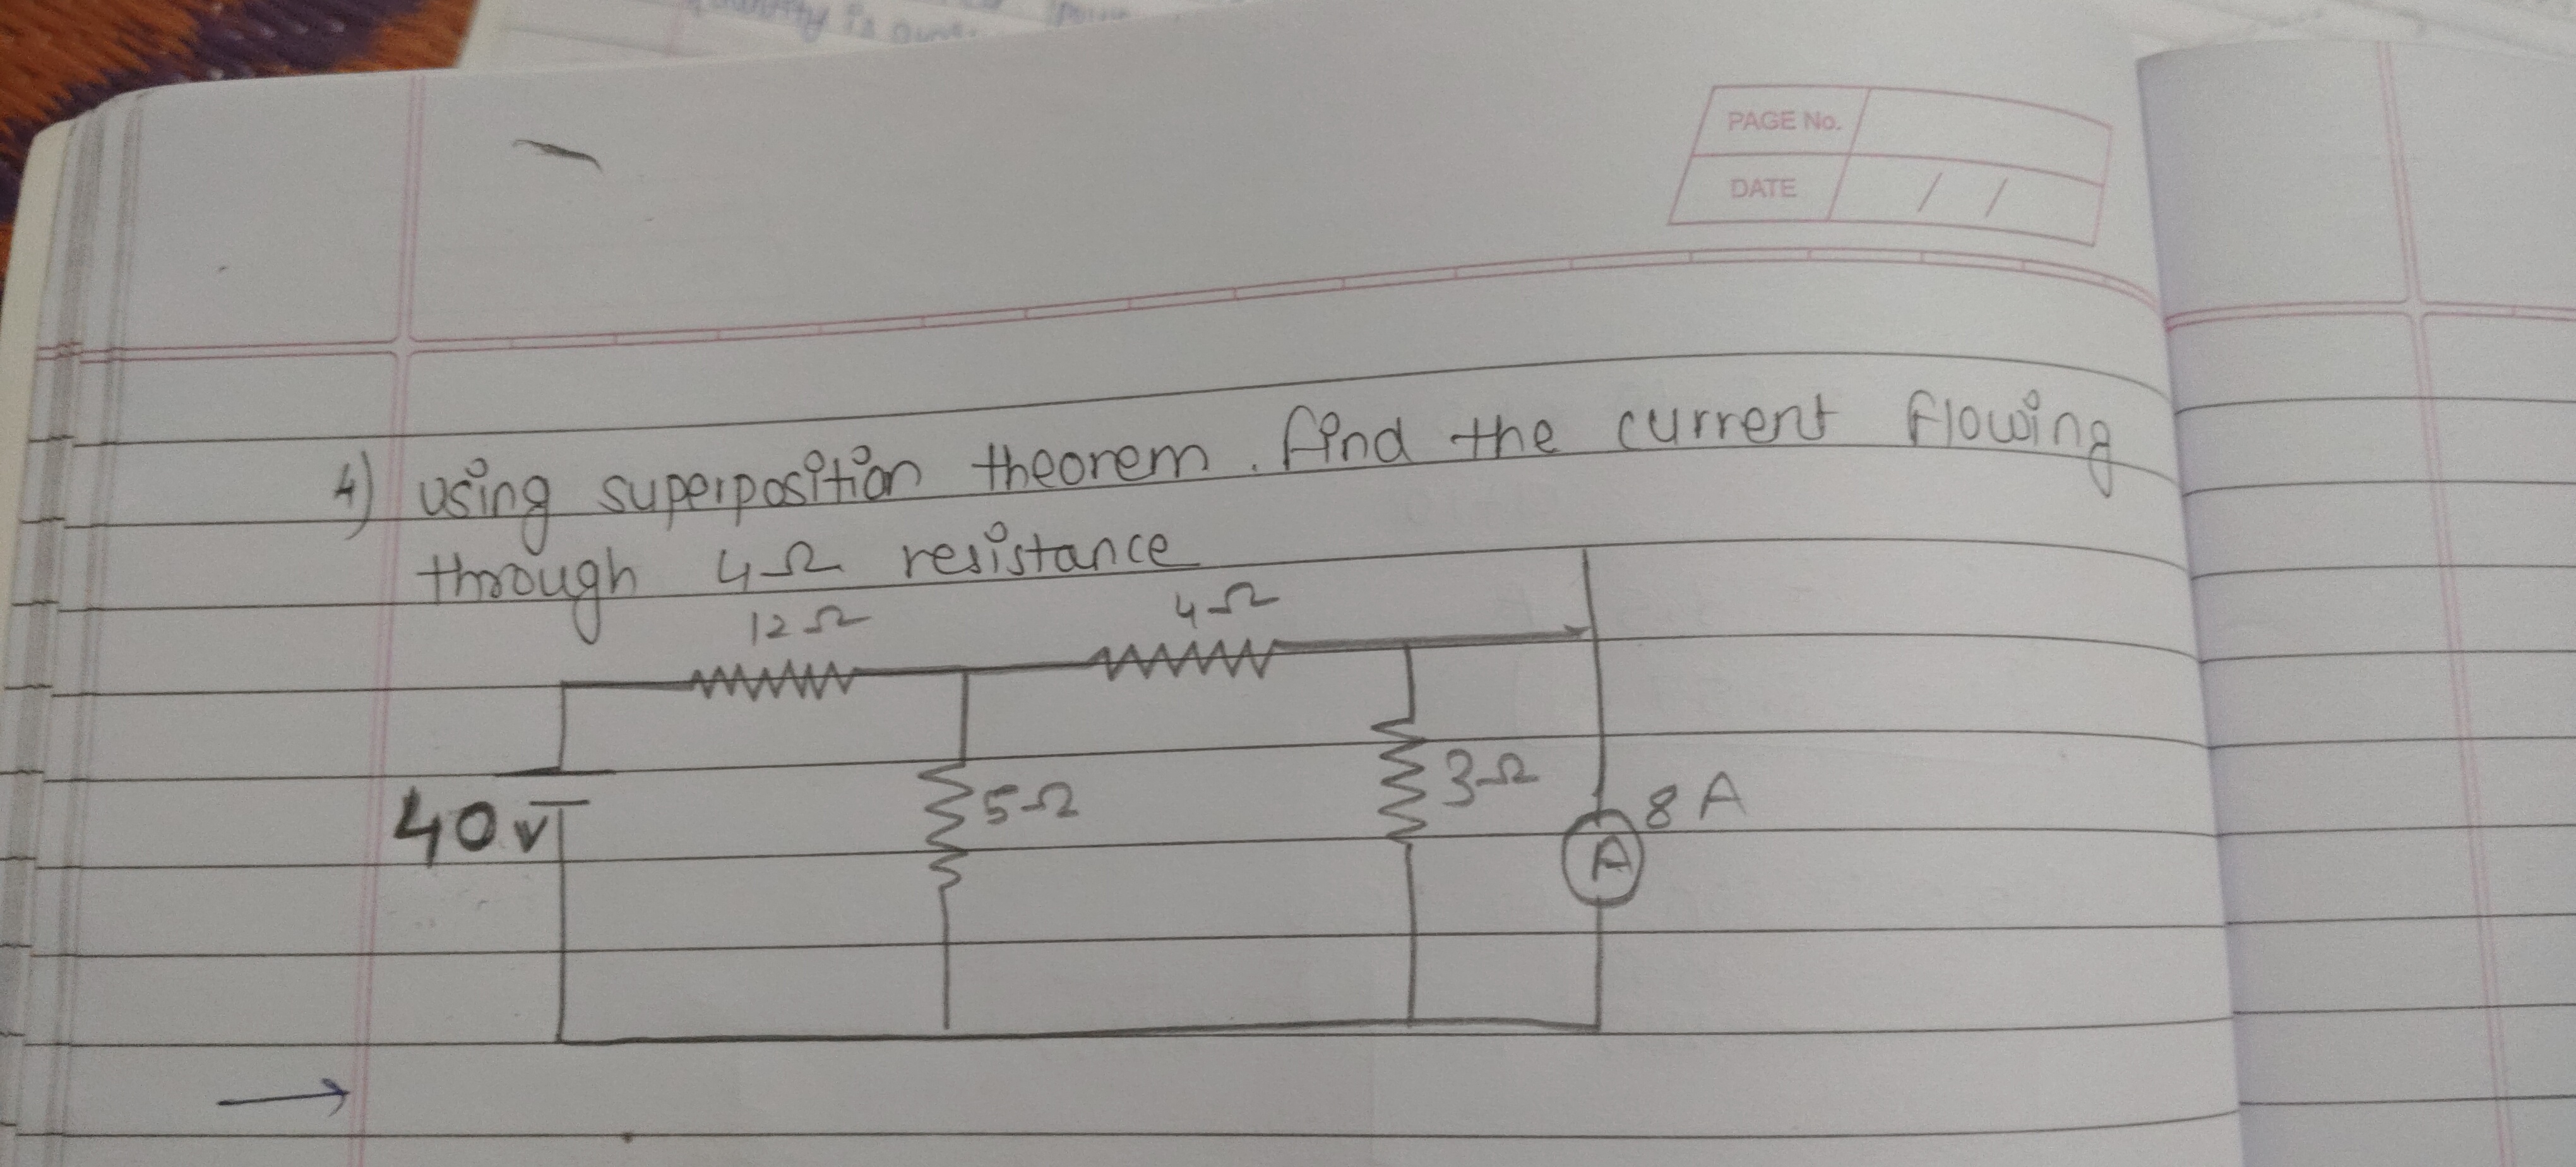 PAGE No.
DATE / /
4) using superposition theorem. find the current flowing
through 4Ω resistance
12Ω
4Ω
40v
5Ω
3Ω
8 A
A